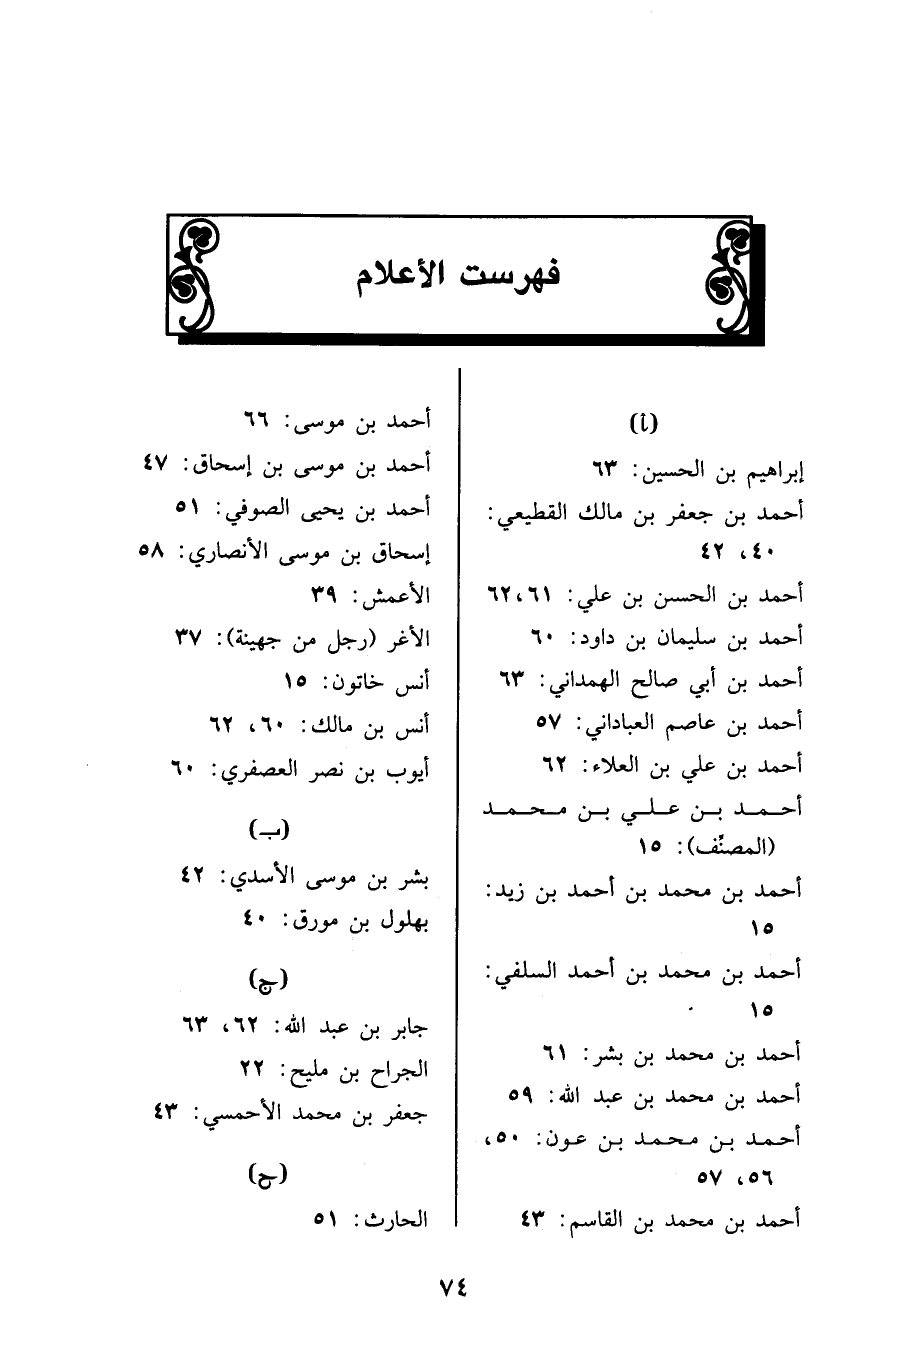 فهرست الأعلام
(أ)
إبراهيم بن الحسين: ٦٣
أحمد بن جعفر بن مالك القطيعي:
٤٠، ٤٢
أحمد بن الحسن بن علي: ٦١،٦٢
أحمد بن سليمان بن داود: ٦٠
أحمد بن أبي صالح الهمداني: ٦٣
أحمد بن عاصم العباداني: ٥٧
أحمد بن علي بن العلاء: ٦٢
أحـمـد بـن عـلـي بـن مـحـمـد
(المصنِّف): ١٥
أحمد بن محمد بن أحمد بن زيد:
١٥
أحمد بن محمد بن أحمد السلفي:
١٥
أحمد بن محمد بن بشر: ٦١
أحمد بن محمد بن عبد الله: ٥٩
أحـمـد بـن مـحـمـد بـن عـون: ٥٠،
٥٦، ٥٧
أحمد بن محمد بن القاسم: ٤٣
أحمد بن موسى: ٦٦
أحمد بن موسى بن إسحاق: ٤٧
أحمد بن يحيى الصوفي: ٥١
إسحاق بن موسى الأنصاري: ٥٨
الأعمش: ٣٩
الأغر (رجل من جهينة): ٣٧
أنس خاتون: ١٥
أنس بن مالك: ٦٠، ٦٢
أيوب بن نصر العصفري: ٦٠
(ب)
بشر بن موسى الأسدي: ٤٢
بهلول بن مورق: ٤٠
(ج)
جابر بن عبد الله: ٦٢، ٦٣
الجراح بن مليح: ٢٢
جعفر بن محمد الأحمسي: ٤٣
(ح)
الحارث: ٥١
٧٤